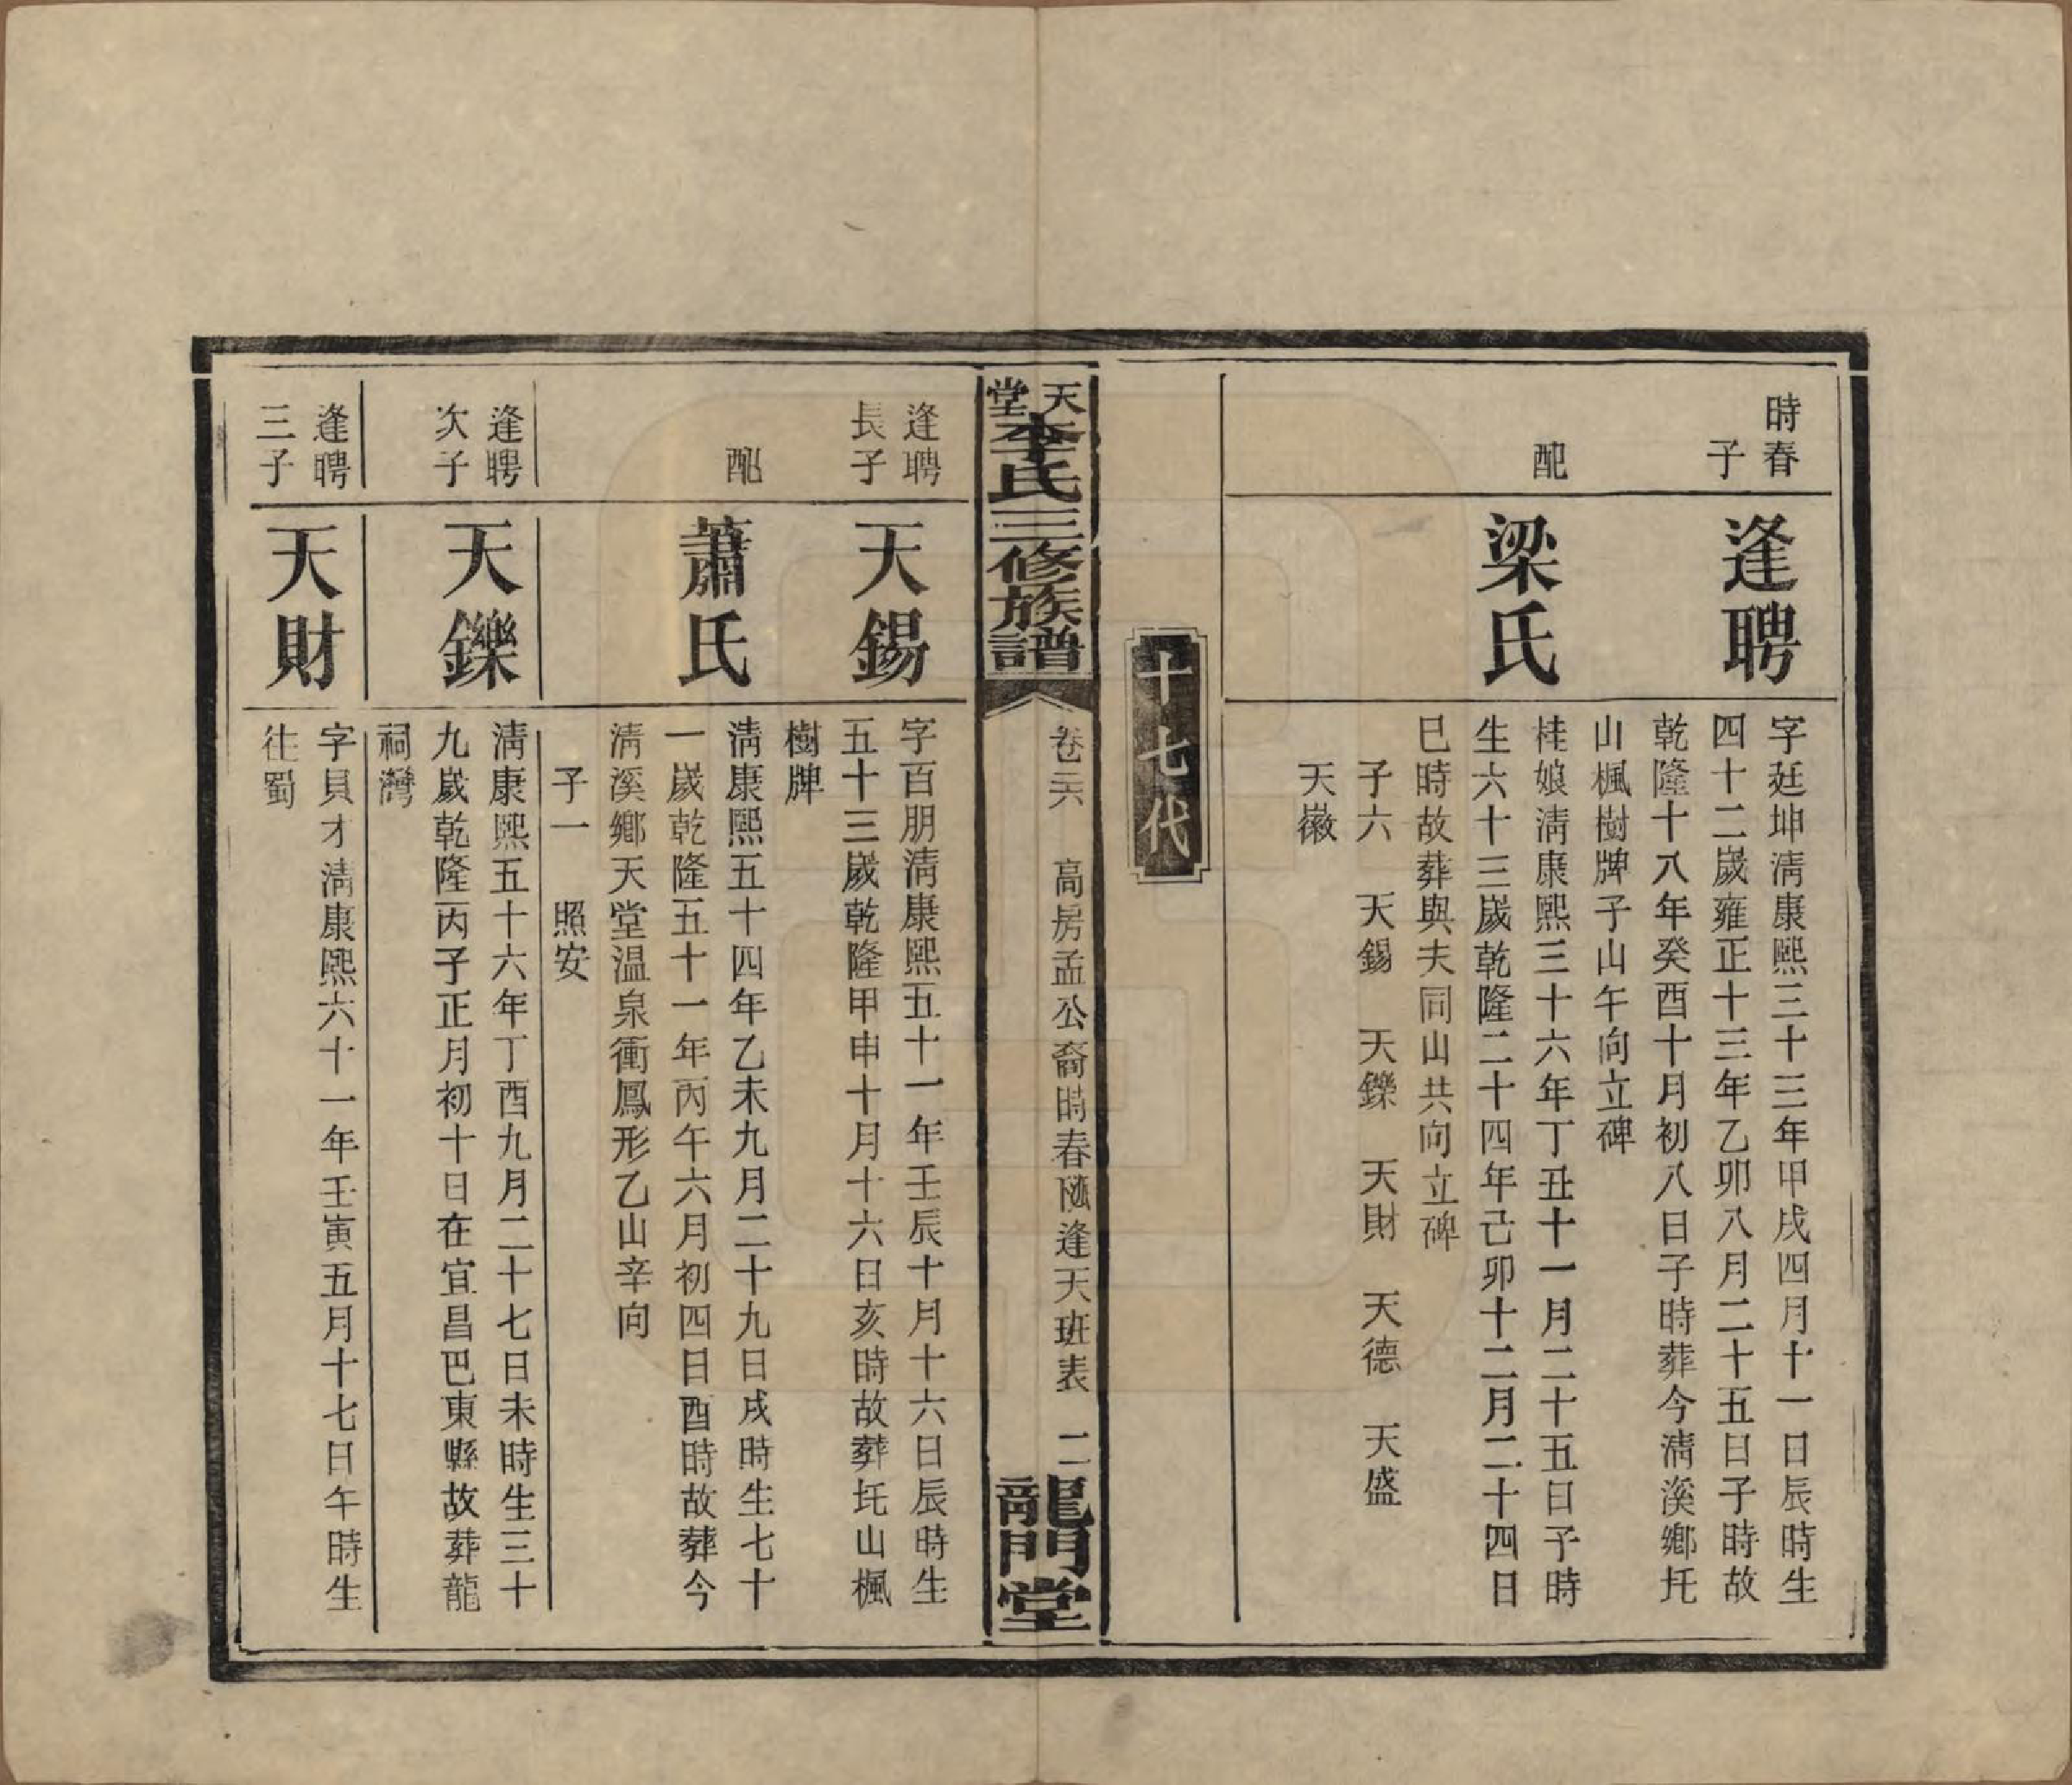 時春
子
逢聘
字廷坤淸康熙三十三年甲戌四月十一日辰時生
四十二歲雍正十三年乙卯八月二十五日子時故
乾隆十八年癸酉十月初八日子時葬今淸溪鄉圫
山楓樹牌子山午向立碑
配
梁氏
桂娘淸康熙三十六年丁丑十一月二十五日子時
生六十三歲乾隆二十四年己卯十二月二十四日
巳時故葬與夫同山共向立碑
子六　天錫　天鑠　天財　天德　天盛
天徽
十七代
天堂李氏三修族譜
卷二六　高房孟公裔時春𠥓逢天班表　二
龍門堂
逢聘
長子
天錫
字百朋淸康熙五十一年壬辰十月十六日辰時生
五十三歲乾隆甲申十月十六日亥時故葬圫山楓
樹牌
配
蕭氏
淸康熙五十四年乙未九月二十九日戌時生七十
一歲乾隆五十一年丙午六月初四日酉時故葬今
淸溪鄉天堂温泉衝鳳形乙山辛向
子一　照安
逢聘
次子
天鑠
淸康熙五十六年丁酉九月二十七日未時生三十
九歲乾隆丙子正月初十日在宜昌巴東縣故葬龍
祠灣
逢聘
三子
天財
字貝才淸康熙六十一年壬寅五月十七日午時生
往蜀